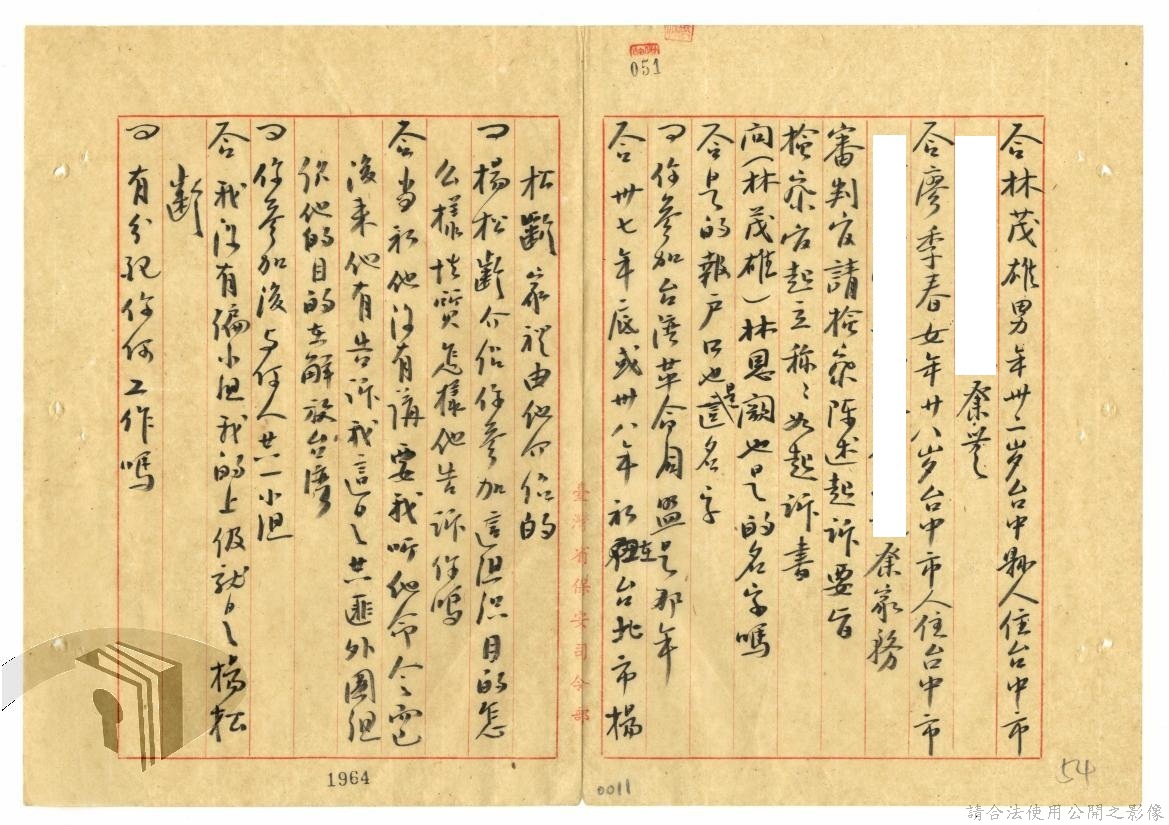 051
答林茂雄男年卅一岁台中縣人住台中市
業農
答廖季春女年廿八岁台中市人住台中市
業家務
審判官請檢察官陳述起訴要旨
檢察官起立称:如起訴書
問(林茂雄)林恩潤也是的名字嗎
答是的報户口也是這名字
問你參加台湾革命同盟是那年
答卅七年底或卅八年初在台北市楊
松齡家裡由他介绍的
問楊松齡介绍你參加這组织目的怎
么樣性質怎樣他告訴你嗎
答当初他没有講要我听他命令而已
後来他有告訴我這是共匪外圍组
织他的目的在解放台灣
問你參加後与何人共一小组
答我没有编小组我的上级就是楊松
齡
問有分配你何工作嗎
臺灣省保安司令部
1964
0011
54
請合法使用公開之影像